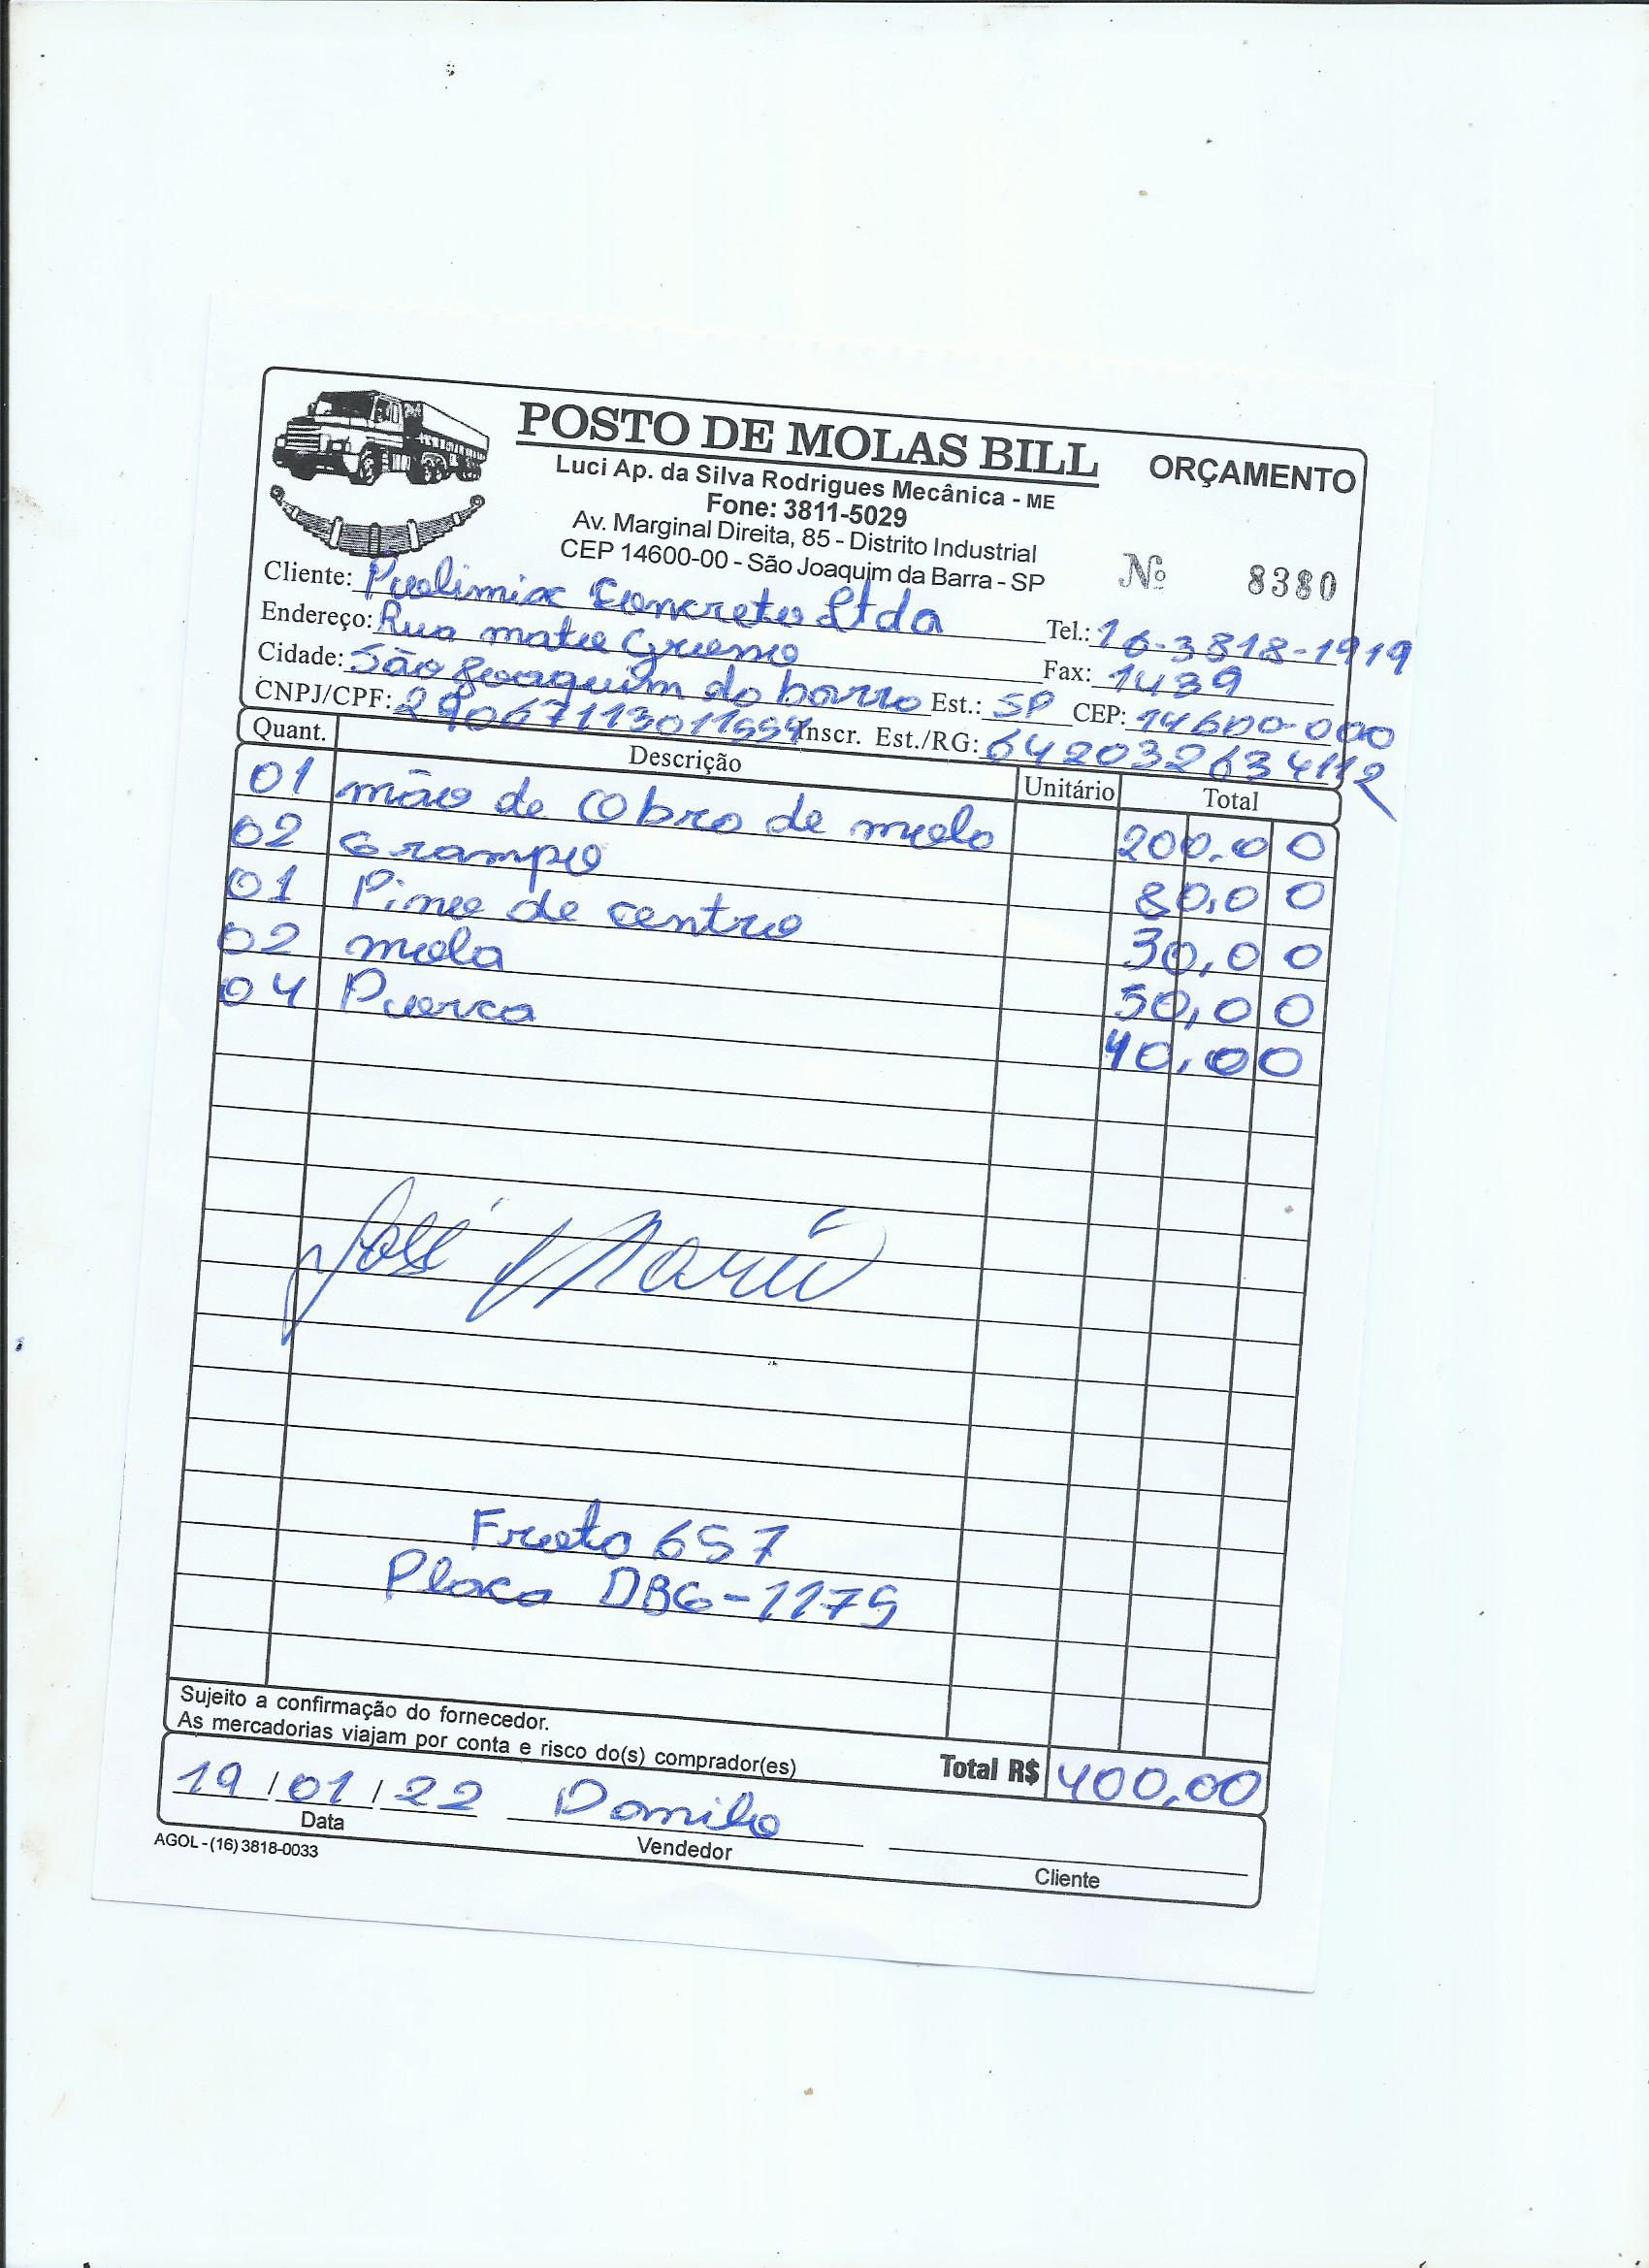 POSTO DE MOLAS BILL ORÇAMENTO
Luci Ap. da Silva Rodrigues Mecânica - ME
Fone: 3811-5029
Av. Marginal Direita, 85 - Distrito Industrial
CEP 14600-00 - São Joaquim da Barra - SP Nº 8380
Cliente: Polimix Concreto Ltda
Endereço: Rua mato Grosso Tel.: 16-3818-1919
Cidade: São Joaquim da barra Fax: 1439
Est.: SP CEP: 14600-000
CNPJ/CPF: Inscr. Est./RG: 642032634112
Quant. Descrição Unitário Total
01 mão de Obra de mola 200,00
02 Grampo 80,00
01 Pino de centro 30,00
02 mola 50,00
04 Porca 40,00
José Maria
Frota 657
Placa DBG-1175
Sujeito a confirmação do fornecedor.
As mercadorias viajam por conta e risco do(s) comprador(es)
Total R$ 400,00
19/01/22 Danilo
Data Vendedor Cliente
AGOL - (16) 3818-0033